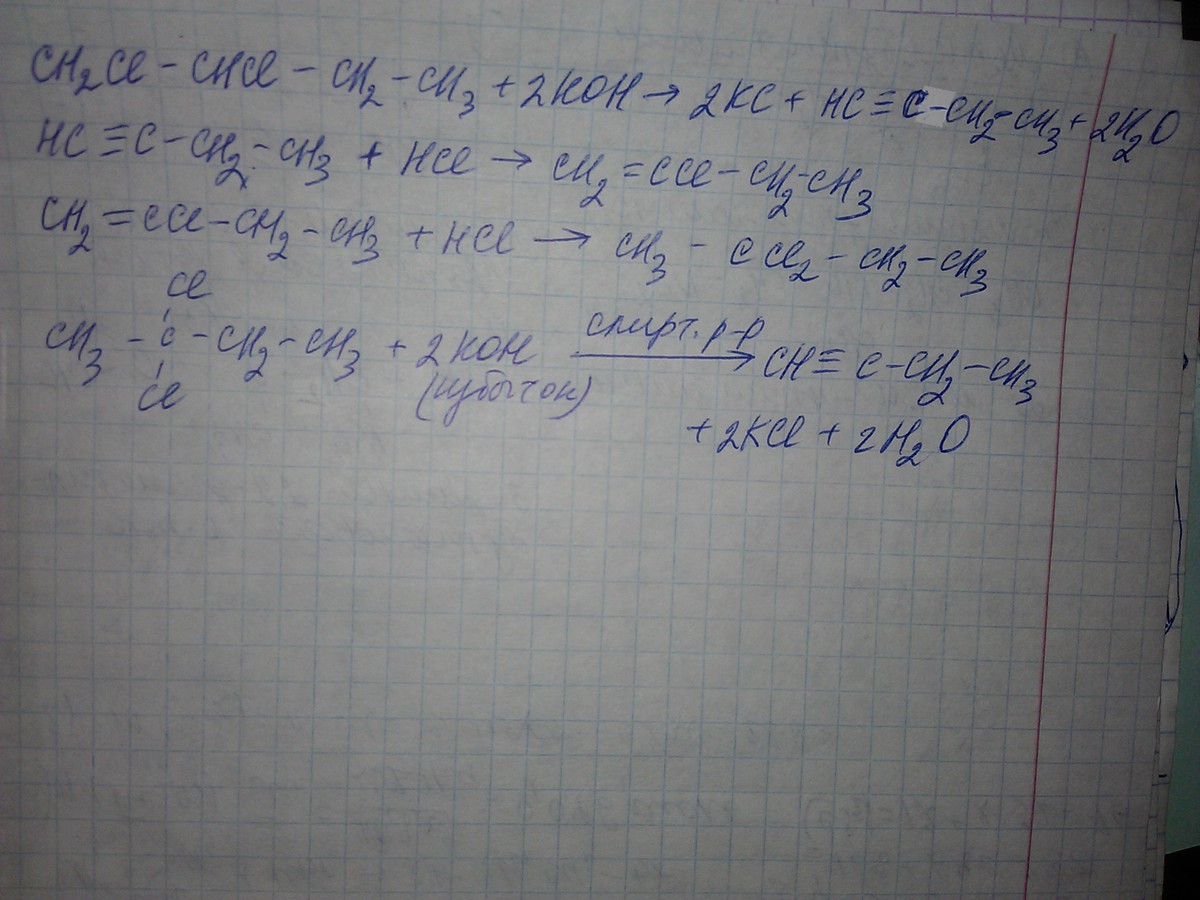 CH₂Cl – CHCl – CH₂ – CH₃ + 2KOH → 2KC + HC ≡ C – CH₂ – CH₃ + 2H₂O
HC ≡ C – CH₂ – CH₃ + HCl → CH₂ = CCl – CH₂ – CH₃
CH₂ = CCl – CH₂ – CH₃ + HCl → CH₃ – CCl₂ – CH₂ – CH₃
Cl
CH₃ – C – CH₂ – CH₃ + 2KOH спирт. р-р → CH ≡ C – CH₂ – CH₃
Cl (избыток)
+ 2KCl + 2H₂O